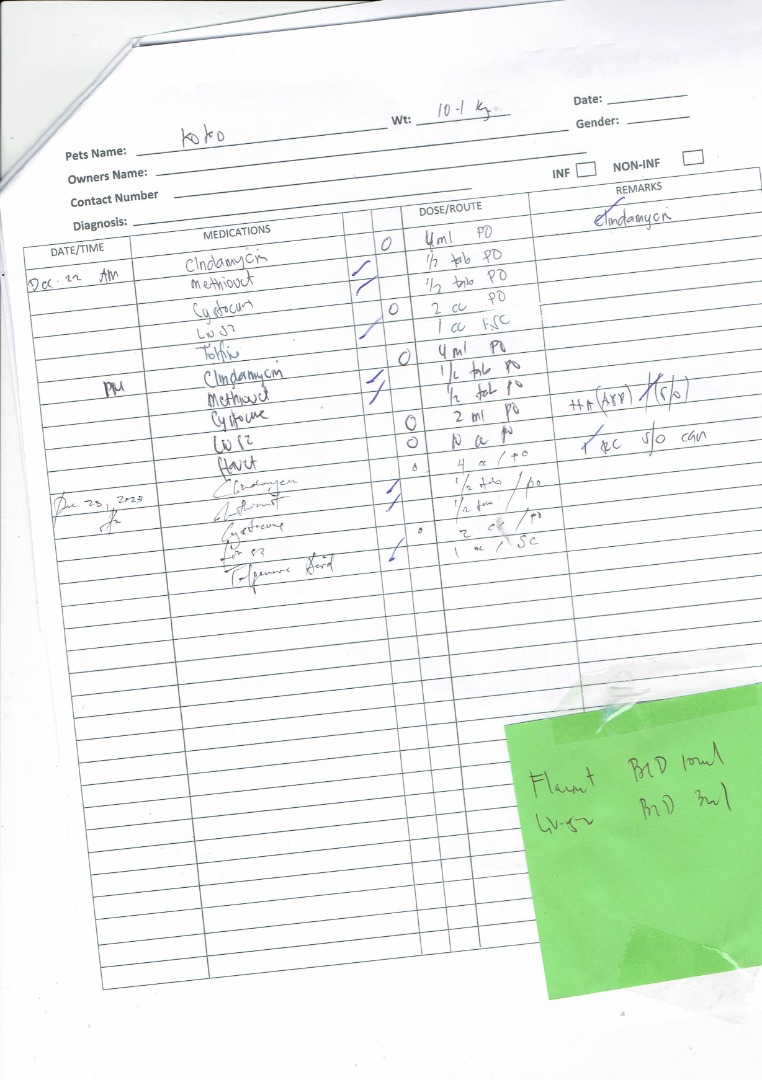 Pets Name: KOKO Wt: 10.1 kg Date:
Owners Name: Gender:
Contact Number
Diagnosis: INF NON-INF
DATE/TIME MEDICATIONS DOSE/ROUTE REMARKS
Dec. 22 AM Clindamycin O 4ml PO Clindamycin
Methiovet 1/2 tab PO
Cystocure 1/2 tab PO
LIV 52 O 2 cc PO
Tolfine 1 cc SC
PM Clindamycin O 4 ml PO
Methiovet 1/2 tab PO
Cystocure 1/2 tab PO
LIV 52 O 2 ml PO
O PO s/o can
Dec 23, 2023 Clindamycin 4 cc / PO
1/2 tab / PO
Cystocure 1/2 tab / PO
Liv 52 2 cc / PO
Tolfenamic Acid 1 cc / SC
BID 10ml
Liv-52 BID 3ml